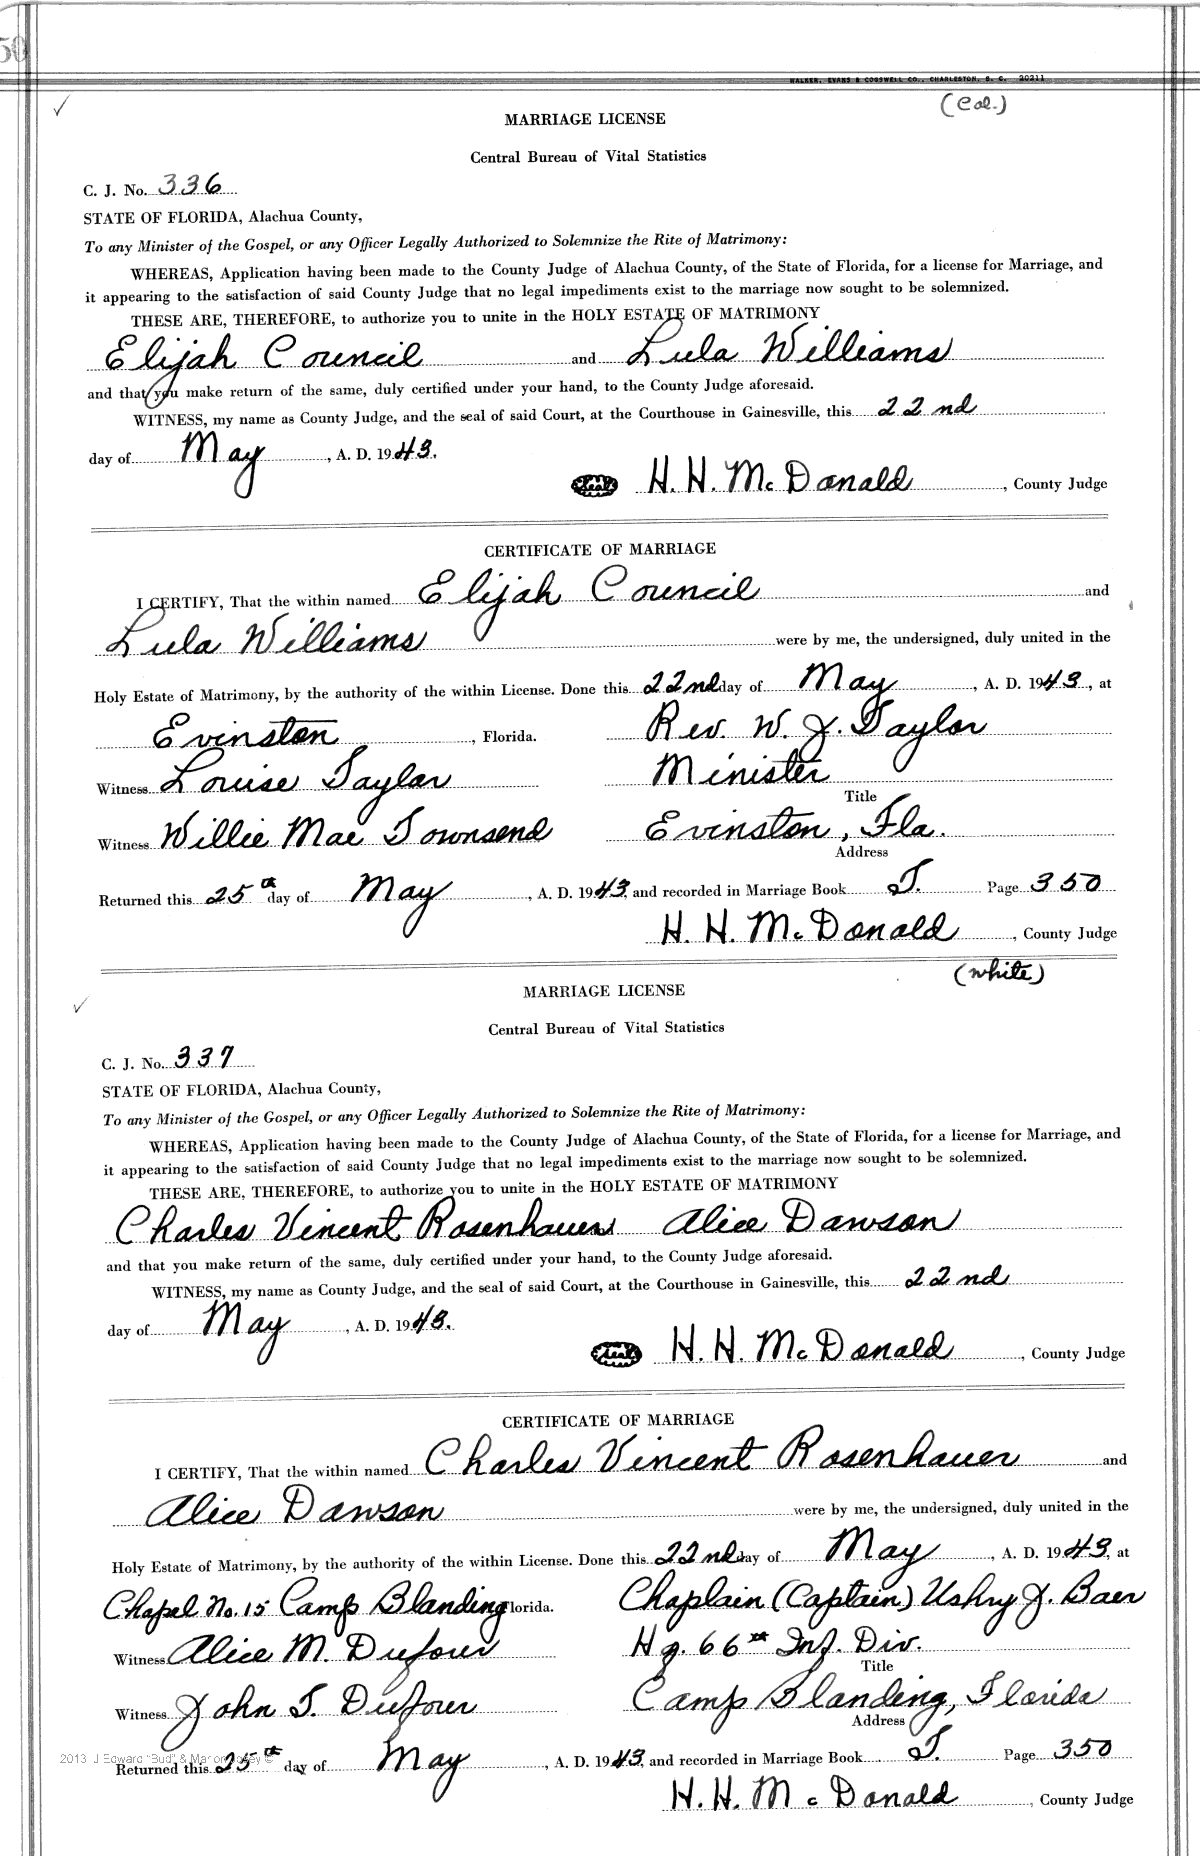 50
WALKER, EVANS & COGSWELL CO., CHARLESTON, S. C. 20211
(Col.)
MARRIAGE LICENSE
Central Bureau of Vital Statistics
C. J. No. 336
STATE OF FLORIDA, Alachua County,
To any Minister of the Gospel, or any Officer Legally Authorized to Solemnize the Rite of Matrimony:
WHEREAS, Application having been made to the County Judge of Alachua County, of the State of Florida, for a license for Marriage, and
it appearing to the satisfaction of said County Judge that no legal impediments exist to the marriage now sought to be solemnized.
THESE ARE, THEREFORE, to authorize you to unite in the HOLY ESTATE OF MATRIMONY
Elijah Council and Lula Williams
and that you make return of the same, duly certified under your hand, to the County Judge aforesaid.
WITNESS, my name as County Judge, and the seal of said Court, at the Courthouse in Gainesville, this 22nd
day of May, A. D. 1943.
Seal H. H. McDonald, County Judge
CERTIFICATE OF MARRIAGE
I CERTIFY, That the within named Elijah Council and
Lula Williams were by me, the undersigned, duly united in the
Holy Estate of Matrimony, by the authority of the within License. Done this 22nd day of May, A. D. 1943, at
Evinston, Florida. Rev. W. J. Taylor
Witness Louise Taylor Minister
Title
Witness Willie Mae Townsend Evinston, Fla.
Address
Returned this 25th day of May, A. D. 1943, and recorded in Marriage Book T. Page 350
H. H. McDonald, County Judge
(white)
MARRIAGE LICENSE
Central Bureau of Vital Statistics
C. J. No. 337
STATE OF FLORIDA, Alachua County,
To any Minister of the Gospel, or any Officer Legally Authorized to Solemnize the Rite of Matrimony:
WHEREAS, Application having been made to the County Judge of Alachua County, of the State of Florida, for a license for Marriage, and
it appearing to the satisfaction of said County Judge that no legal impediments exist to the marriage now sought to be solemnized.
THESE ARE, THEREFORE, to authorize you to unite in the HOLY ESTATE OF MATRIMONY
Charles Vincent Rosenhauer Alice Dawson
and that you make return of the same, duly certified under your hand, to the County Judge aforesaid.
WITNESS, my name as County Judge, and the seal of said Court, at the Courthouse in Gainesville, this 22nd
day of May, A. D. 1943.
Seal H. H. McDonald, County Judge
CERTIFICATE OF MARRIAGE
I CERTIFY, That the within named Charles Vincent Rosenhauer and
Alice Dawson were by me, the undersigned, duly united in the
Holy Estate of Matrimony, by the authority of the within License. Done this 22nd day of May, A. D. 1943, at
Chapel No. 15 Camp Blanding Florida. Chaplain (Captain) Ushry J. Baer
Witness Alice M. Dufour Hq. 66th Inf. Div.
Title
Witness John T. Dufour Camp Blanding, Florida
Address
2013 J Edward "Bud" & Marion
Returned this 25th day of May, A. D. 1943, and recorded in Marriage Book T. Page 350
H. H. McDonald, County Judge